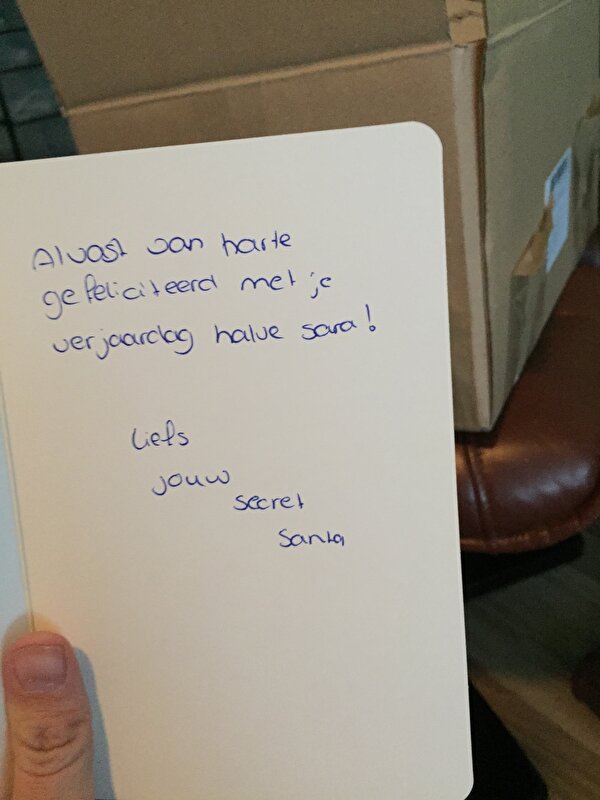 Alvast van harte
gefeliciteerd met je
verjaardag halve sara!
Liefs
jouw
secret
Santa